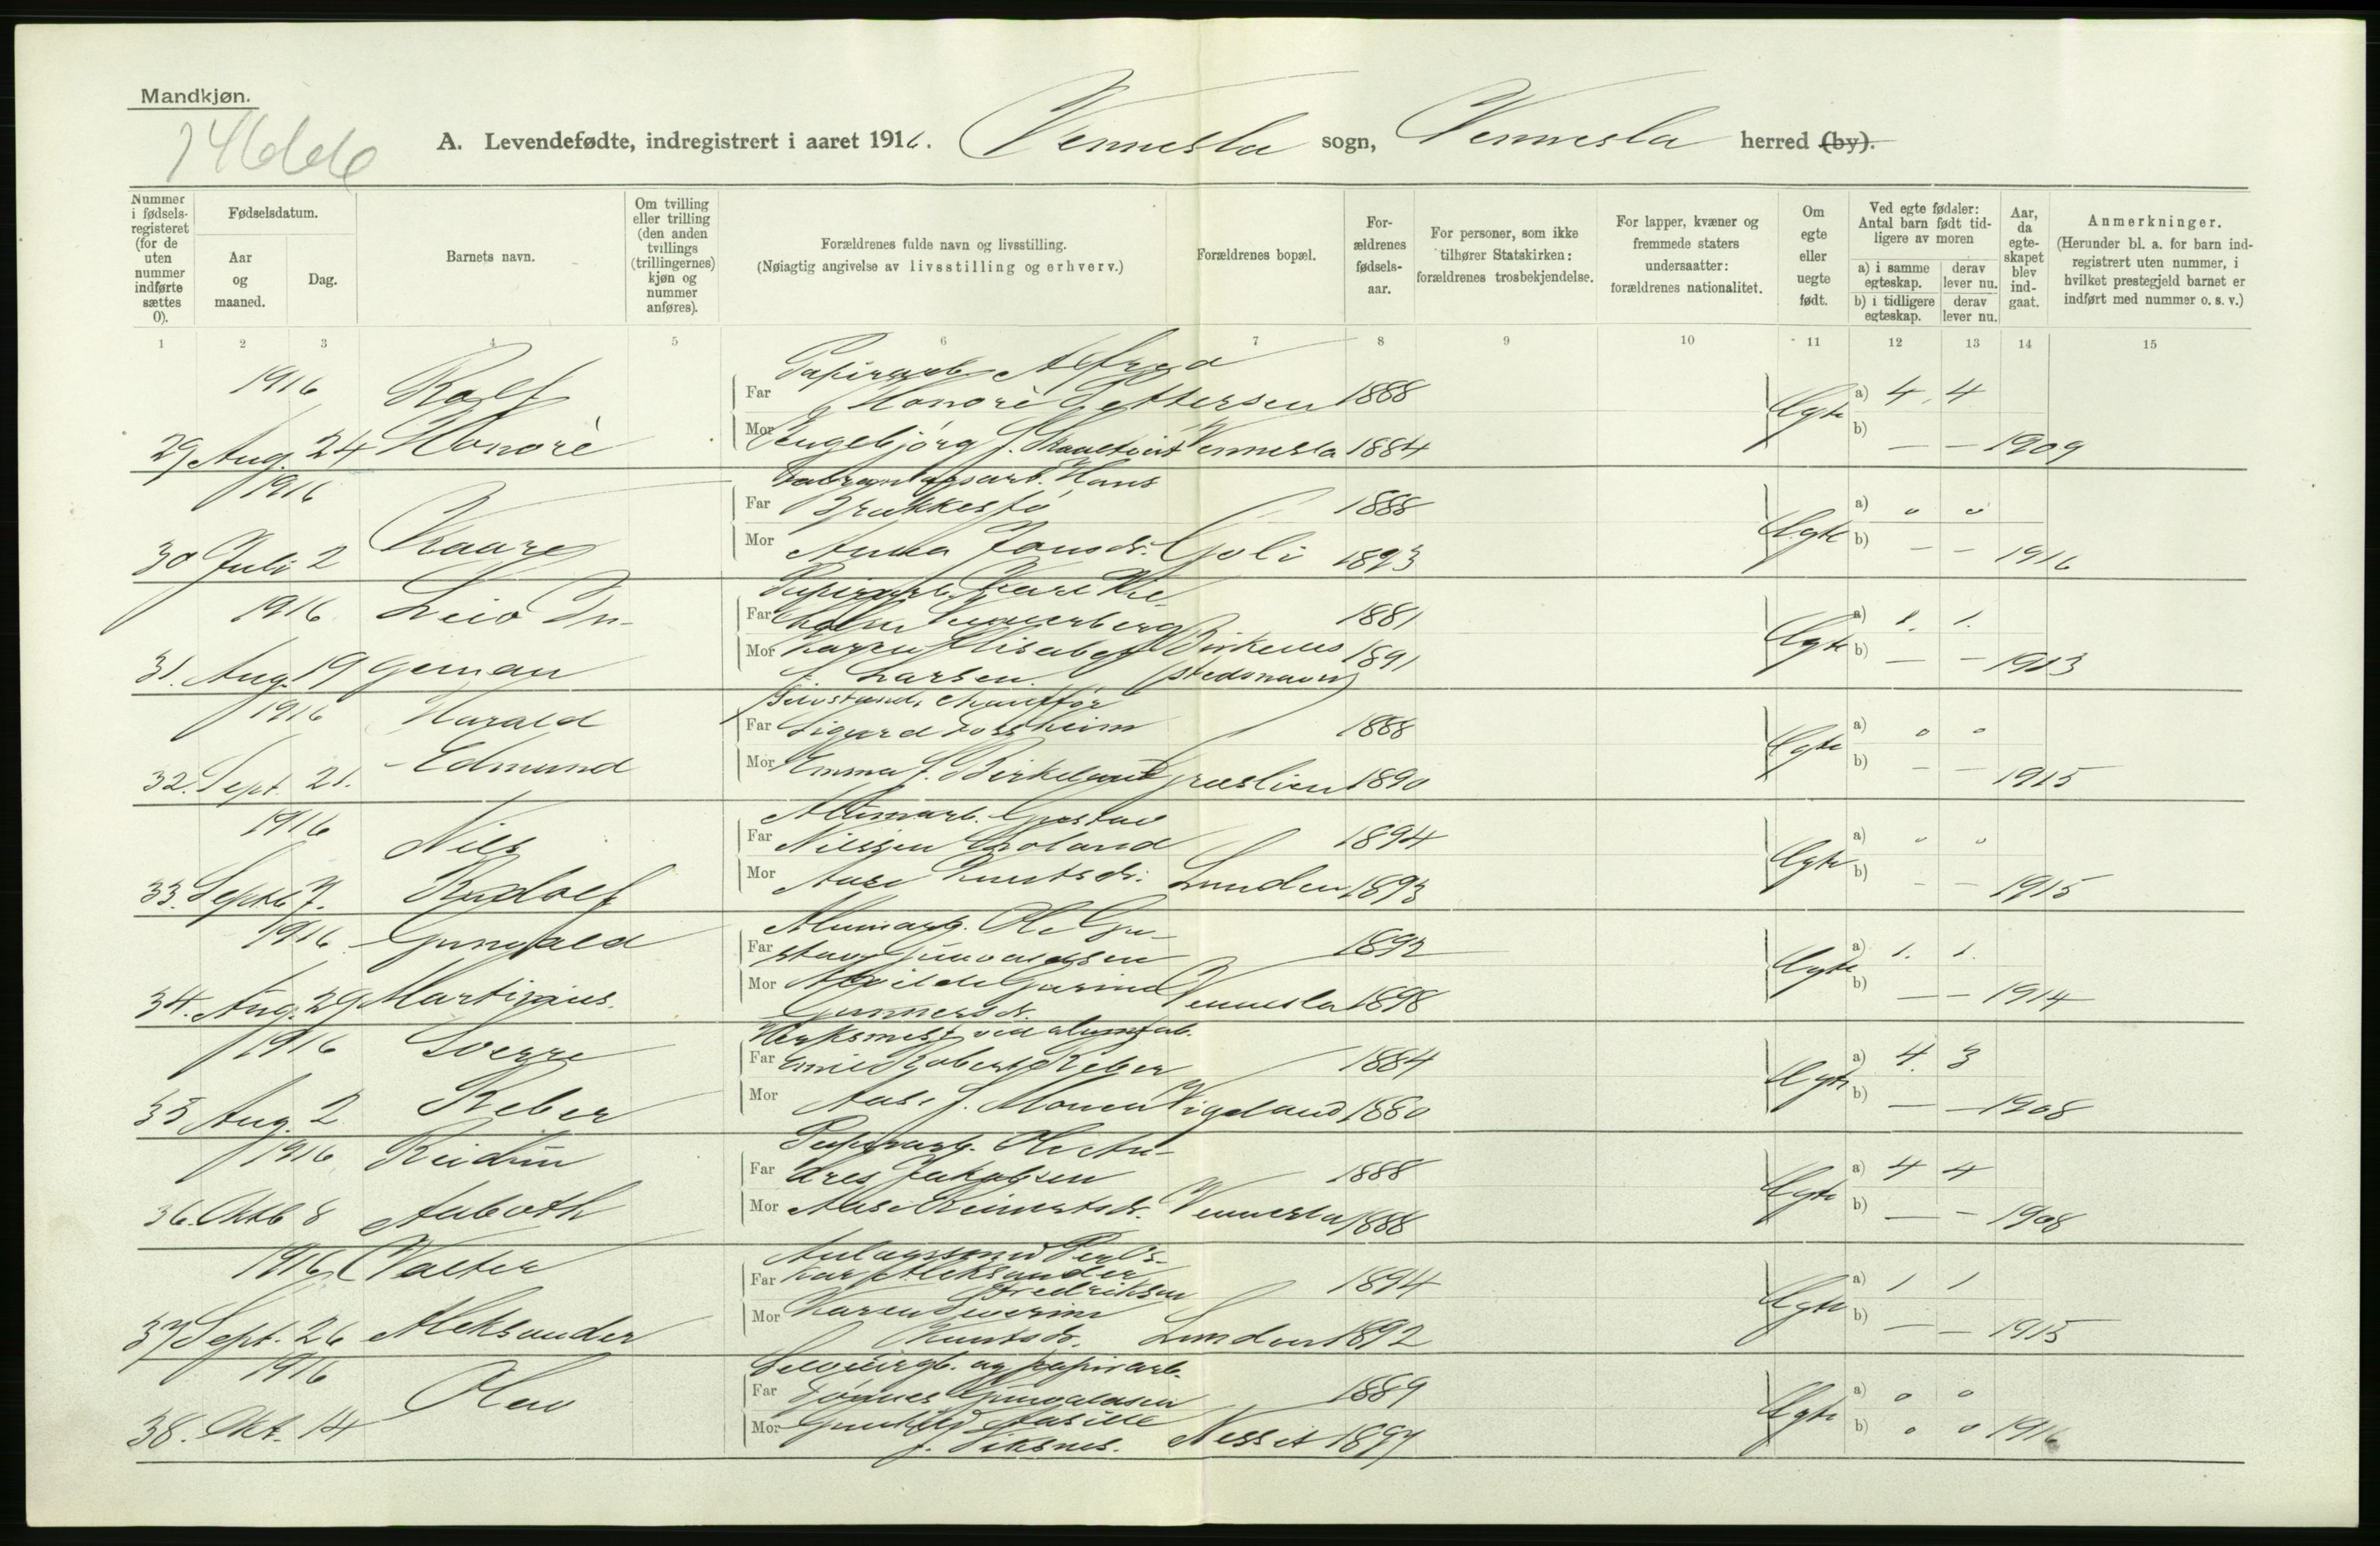 Mandkjøn.
A. Levendefødte, indregistrert i aaret 1916. Vennesla sogn, Vennesla herred (by).
Nummer i fødsels-registeret (for de uten nummer indførte sættes 0).
Fødselsdatum.
Aar og maaned.
Dag.
Barnets navn.
Om tvilling eller trilling (den anden tvillings (trillingernes) kjøn og nummer anføres).
Forældrenes fulde navn og livsstilling.
(Nøiagtig angivelse av livsstilling og erhverv.)
Forældrenes bopæl.
For-ældrenes fødsels-aar.
For personer, som ikke tilhører Statskirken: forældrenes trosbekjendelse.
For lapper, kvæner og fremmede staters undersaatter: forældrenes nationalitet.
Om egte eller uegte født.
Ved egte fødsler: Antal barn født tid-ligere av moren
a) i samme egteskap. derav lever nu.
b) i tidligere egteskap. derav lever nu.
Aar, da egte-skapet blev ind-gaat.
Anmerkninger.
(Herunder bl. a. for barn ind-registrert uten nummer, i hvilket prestegjeld barnet er indført med nummer o. s. v.)
1 2 3 4 5 6 7 8 9 10 11 12 13 14 15
1916 Ralf Papirarb. Alfred
Far Honorè Pettersen 1888 Egte a) 4 4
29 Aug. 24 Honorè Mor Engebjørg f. Vennesla 1884 b) — — 1909
1916 Hans
Far 1888 Egte a) " "
30 Juli 2 Kaare Mor Anna Jansdr. Goli 1893 b) — — 1916
1916 Leiv In- Papirarb. Karl Vil-
Far helm 1881 Egte a) 1. 1.
31. Aug. 19 geman Mor Karen Elisabet Birkenes 1891 b) — — 1913
f. Larsen. (stedsnavn)
1916 Harald chauffør
Far Sigurd 1888 Egte a) " "
32. Sept. 21. Edmund Mor Emma f. Birkeland Græslien 1890 b) — — 1915
1916 Nils Alumarb. Gustav
Far Nilssen 1894 Egte a) " "
33. Septb 7. Rudolf Mor Aase Knutsdr. Lunden 1893 b) — — 1915
1916 Gunvald Alumarb. Ole Gu-
Far stav Gunvaldsen 1892 Egte a) 1. 1.
34. Aug. 29 Martinius. Mor Vennesla 1898 b) — — 1914
Gunnersdr.
1916 Sverre Verksmest. ved alumfab.
Far Emil Robert Reber 1884 Egte a) 4. 3
35 Aug. 2 Reber Mor Aase f. Moneu Vigeland 1880 b) — — 1908
1916 Reidun Papirarb. Ole An-
Far dres Jakobsen 1888 Egte a) 4 4
36. Oktb 8 Mor Aase Vennesla 1888 b) — — 1908
1916 Valter
Far Karl Aleksander 1894 Egte a) 1 1
Fredriksen
37 Sept. 26 Aleksander Mor Karen Severine
Knutsdr. Lunden 1892 b) — — 1915
1916 Olav og papirarb.
Far Tønnes Gunvaldsen 1889 Egte a) " "
38. Okt. 14 Mor Gunhild
f. Viksnes. Nesset 1897 b) " " 1916